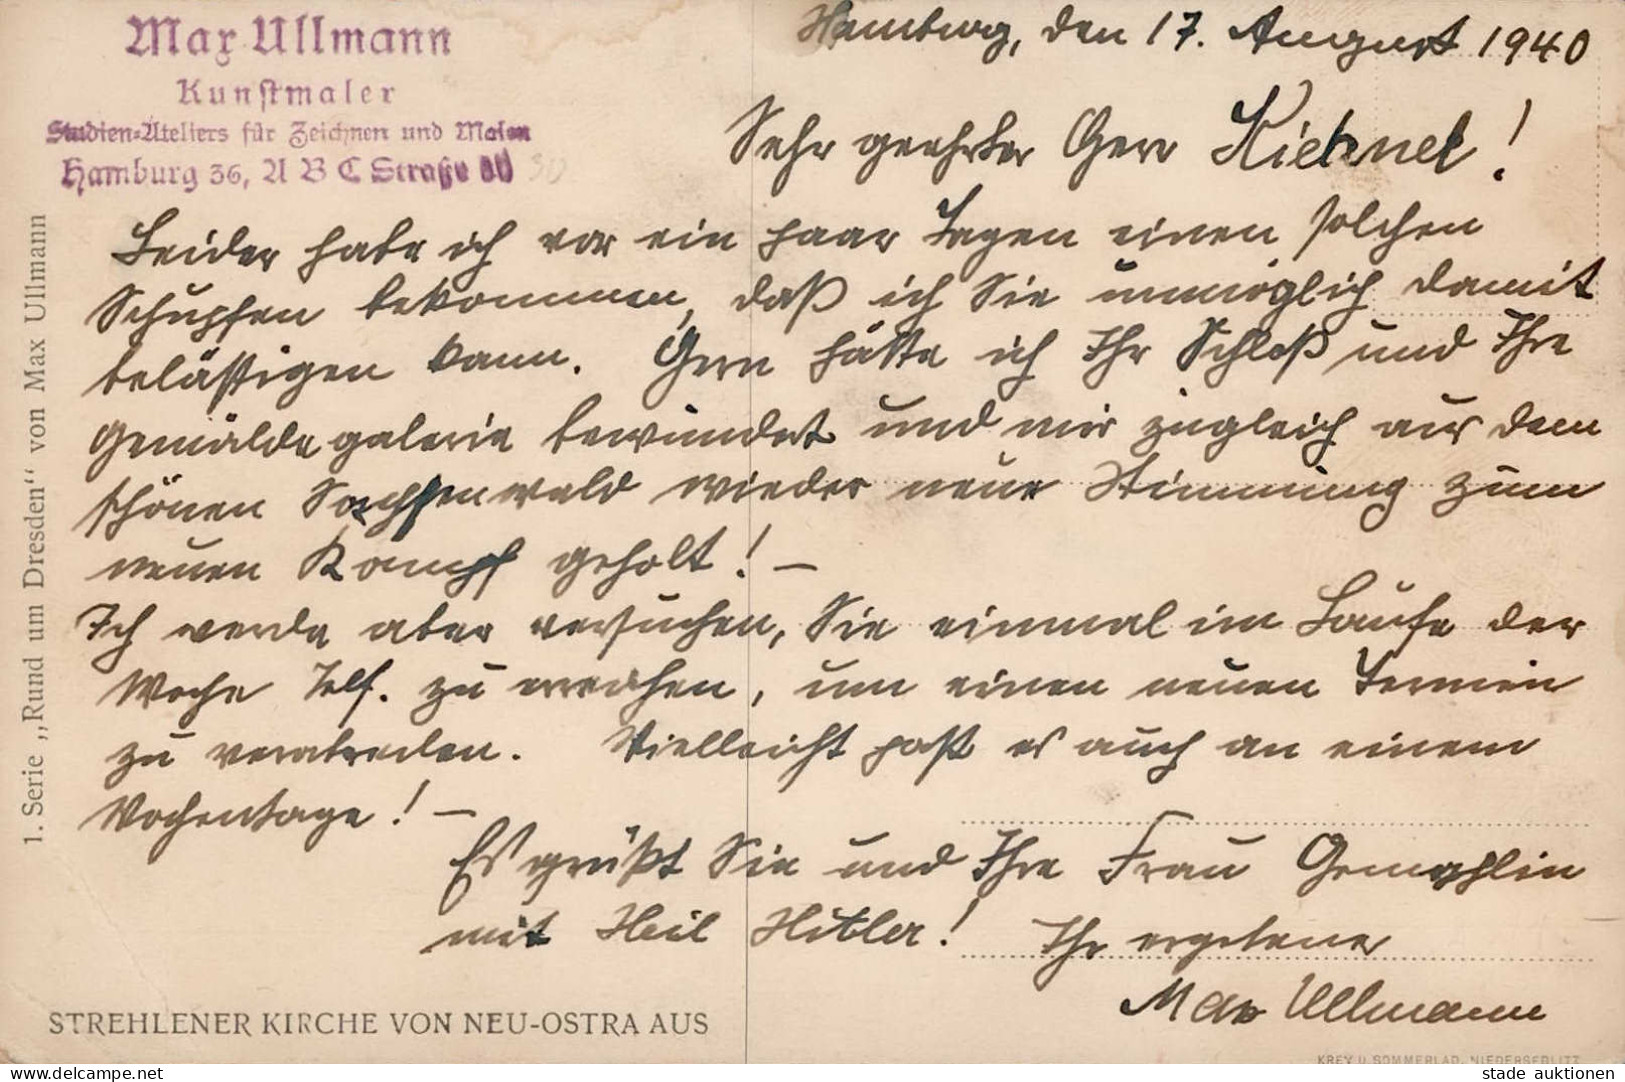 Max Ullmann
Kunstmaler
Studien=Ateliers für Zeichnen und Malen
Hamburg 36, A B C Straße
1. Serie „Rund um Dresden“ von Max Ullmann
Hamburg, den 17. August 1940
Sehr geehrter Herr Kichnel!
Leider habe ich vor ein paar Tagen einen solchen
Schnupfen bekommen, daß ich Sie unmöglich damit
belästigen kann. Gern hätte ich Ihr Schloß und Ihre
Gemäldegalerie bewundert und mir zugleich aus dem
schönen Sachsenwald wieder neue Stimmung zum
neuen Kampf geholt! –
Ich werde aber versuchen, Sie einmal im Laufe der
Woche Telf. zu erreichen, um einen neuen Termin
zu verabreden. Vielleicht past es auch an einem
Wochentage! –
Es grüßt Sie und Ihre Frau Gemahlin
mit Heil Hitler! Ihr ergebener
Max Ullmann
STREHLENER KIRCHE VON NEU-OSTRA AUS
KREY U. SOMMERLAD, NIEDERSEDLITZ
delcampe.net
stade auktionen